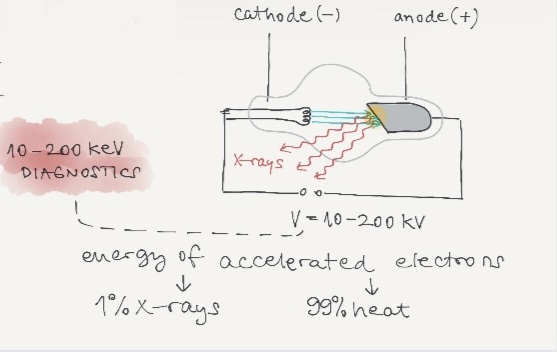 cathode (-)
anode (+)
10-200 keV
DIAGNOSTICS
x-rays
V = 10-200 kV
energy of accelerated electrons
1% x-rays
99% heat